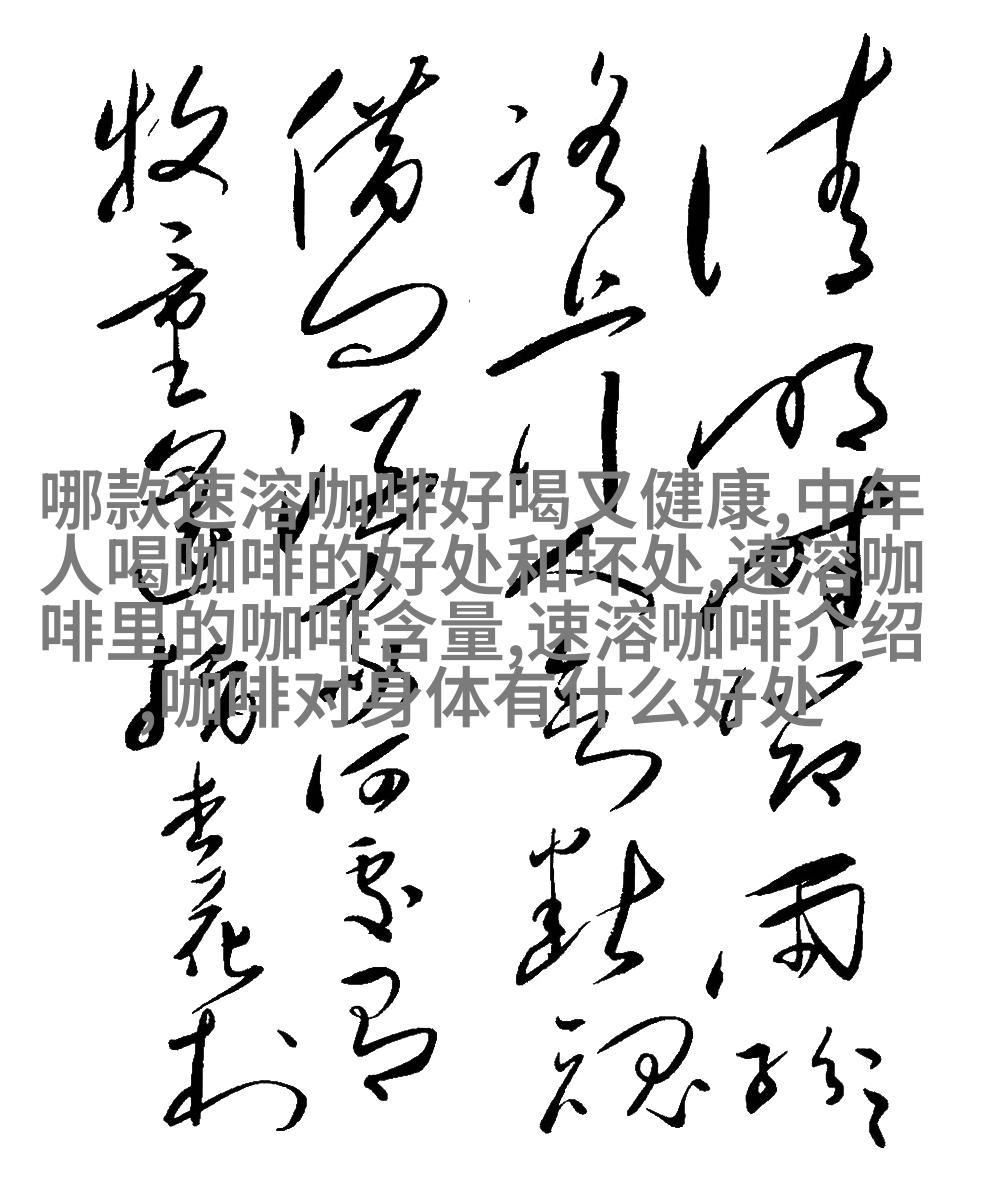 清明時節雨紛紛
路上行人欲斷魂
借問酒家何處有
牧童遙指杏花村
哪款速溶咖啡好喝又健康,中年
人喝咖啡的好处和坏处,速溶咖
啡里的咖啡含量,速溶咖啡介绍
,咖啡对身体有什么好处